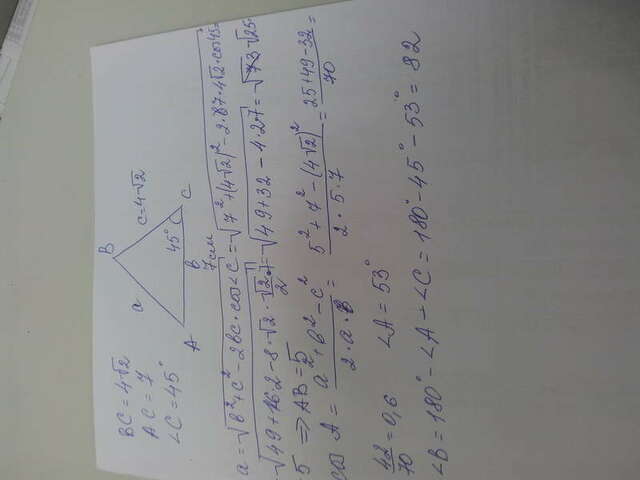 BC = 4√2
AC = 7
∠C = 45°
B
a
c=4√2
45°
C
A
в
7см
a = √в²+c²-2вc·cos∠C = √7²+(4√2)²-2·7·4√2·cos45=
√49+16·2-8·√2·√2/2·7 = √49+32-4·2·7 = √25
5 ⇒ AB = 5
cos A = a²+в²-c² / 2·a·в = 5²+7²-(4√2)² / 2·5·7 = 25+49-32 / 70 =
42/70 = 0,6 ∠A = 53°
∠B = 180° - ∠A - ∠C = 180° - 45° - 53° = 82°